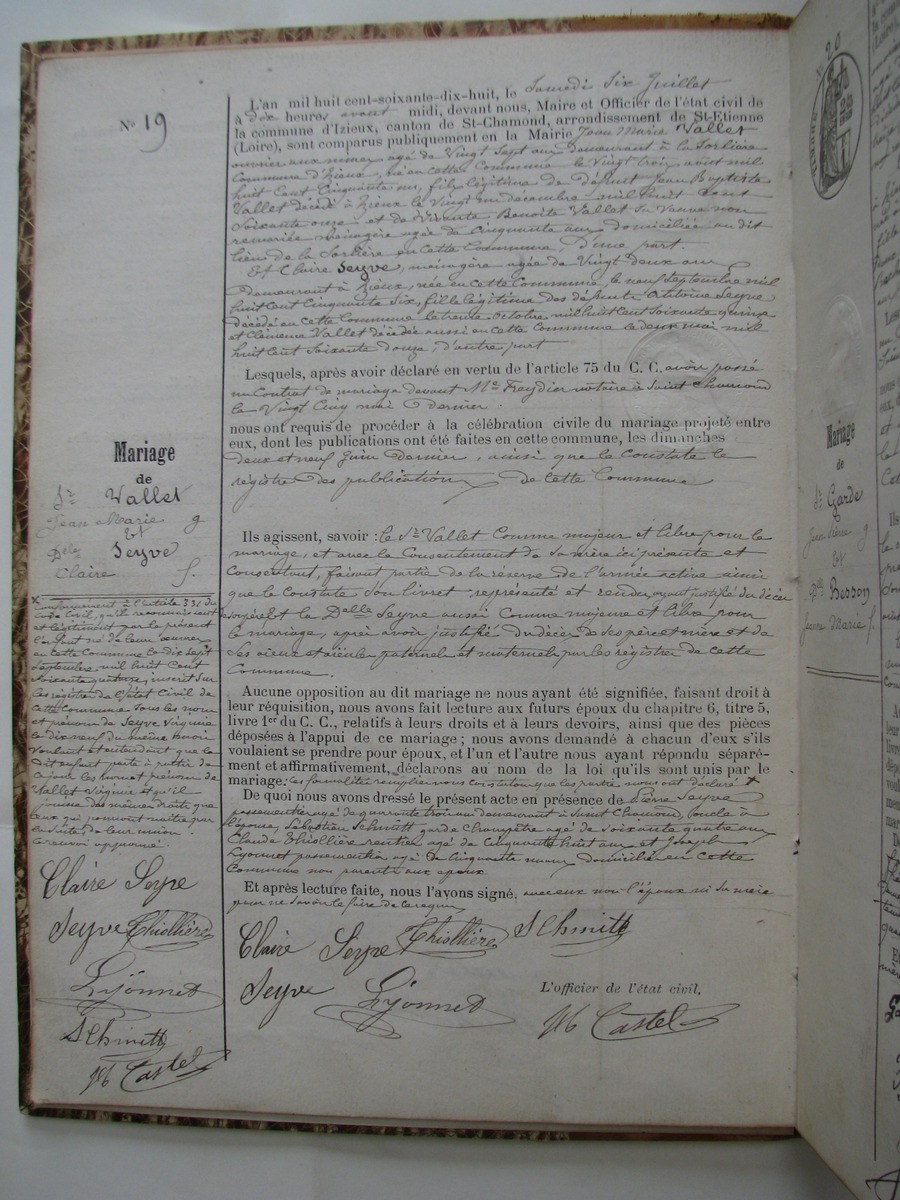 No 19
L'an mil huit cent-soixante-dix-huit, le Samedi Six Juillet
à dix heures avant midi, devant nous, Maire et Officier de l'état civil de
la commune d'Izieux, canton de St-Chamond, arrondissement de St-Etienne
(Loire), sont comparus publiquement en la Mairie Jean Marie Vallet
ouvrier aux mines agé de Vingt Sept ans demeurant à la Sorlière
Commune d'Izieux, né en cette Commune le Vingt trois août mil
huit Cent Cinquante un, fils légitime de défunt Jean Baptiste
Vallet décédé à Izieux le Vingt un décembre mil huit Cent
Soixante onze et de Vivante Benoite Vallet Sa Veuve non
remariée Ménagère agée de Cinquante ans domiciliée au dit
lieu de la Sorlière en cette Commune, d'une part.
Et Claire Seyve, ménagère agée de Vingt deux ans
demeurant à Izieux, née en cette Commune le neuf Septembre mil
huit Cent Cinquante Six, fille légitime des défunts Antoine Seyve
décédé en cette Commune le trente Octobre mil huit Cent Soixante quinze
et Clémence Vallet décédée aussi en cette Commune le deux mai mil
huit Cent Soixante douze, d'autre part
Lesquels, après avoir déclaré en vertu de l'article 75 du C. C. avoir passé
un Contrat de mariage devant Me Freydier notaire à Saint Chamond
le Vingt Cinq mai dernier.
nous ont requis de procéder à la célébration civile du mariage projeté entre
eux, dont les publications ont été faites en cette commune, les dimanches
deux et neuf Juin dernier, ainsi que le Constate le
régistre des publications de cette Commune
Mariage
de
Sr Vallet
Jean Marie g
Et
Delle Seyve
Claire f.
Ils agissent, savoir : le Sr Vallet Comme majeur et libre pour le
mariage, et avec le Consentement de Sa mère ici présente et
Consentant, faisant partie de la réserve de l'armée active ainsi
que le Constate Son livret représenté et rendu, ayant justifié du décès
de son père Et la Delle Seyve aussi Comme majeure et libre pour
le mariage, après avoir justifié du décès de Ses père et mère et de
Ses aieux et aieules paternels et maternels par les régistres de cette
Commune.
Aucune opposition au dit mariage ne nous ayant été signifiée, faisant droit à
leur réquisition, nous avons fait lecture aux futurs époux du chapitre 6, titre 5,
livre 1er du C. C., relatifs à leurs droits et à leurs devoirs, ainsi que des pièces
déposées à l'appui de ce mariage ; nous avons demandé à chacun d'eux s'ils
voulaient se prendre pour époux, et l'un et l'autre nous ayant répondu séparé-
ment et affirmativement, déclarons au nom de la loi qu'ils sont unis par le
mariage: Ces formalités remplies nous Constatons que les parties nous ont déclaré X
De quoi nous avons dressé le présent acte en présence de Pierre Seyve
passementier agé de quarante trois ans demeurant à Saint Chamond, Oncle à
l'épouse, Sébastien Schmitt garde Champêtre agé de Soixante quatre ans
Claude Thiollière rentier agé de Cinquante huit ans et Joseph
Lyonnet passementier agé de Cinquante neuf ans domiciliés en Cette
Commune non parents aux époux
Et après lecture faite, nous l'avons signé. avec eux non l'époux ni Sa mère
pour ne Savoir le faire de ce requis
X Conformément à l'article 331 du
Code Civil, qu'ils reconnaissent
et légitiment par le présent
l'enfant né de leurs œuvres
en cette Commune le dix Sept
Septembre mil huit Cent
Soixante quatorze, inscrit Sur
les régistres de l'état Civil de
Cette Commune Sous les nom
et prénom de Seyve Virginie
le dix neuf du même mois
Voulant et entendant que le
dit enfant porte à partir de
ce jour les nom et prénom de
Vallet Virginie et qu'il
jouisse des mêmes droits que
ceux qui pourront naître par
la Suite de leur union
le renvoi approuvé.
Claire Seyve
Seyve Thiollière
Lyonnet
Schmitt
Castel
Claire Seyve Thiollière Schmitt
Seyve Lyonnet
L'officier de l'état civil,
Castel
Mariage
de
Sr Garde
g
Et
Delle Besson
Jeanne Marie f.